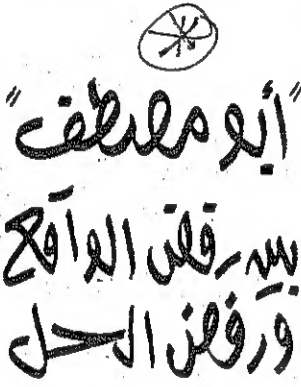 "أبو مصطفى"
بين رفض الواقع
ورفض الحل